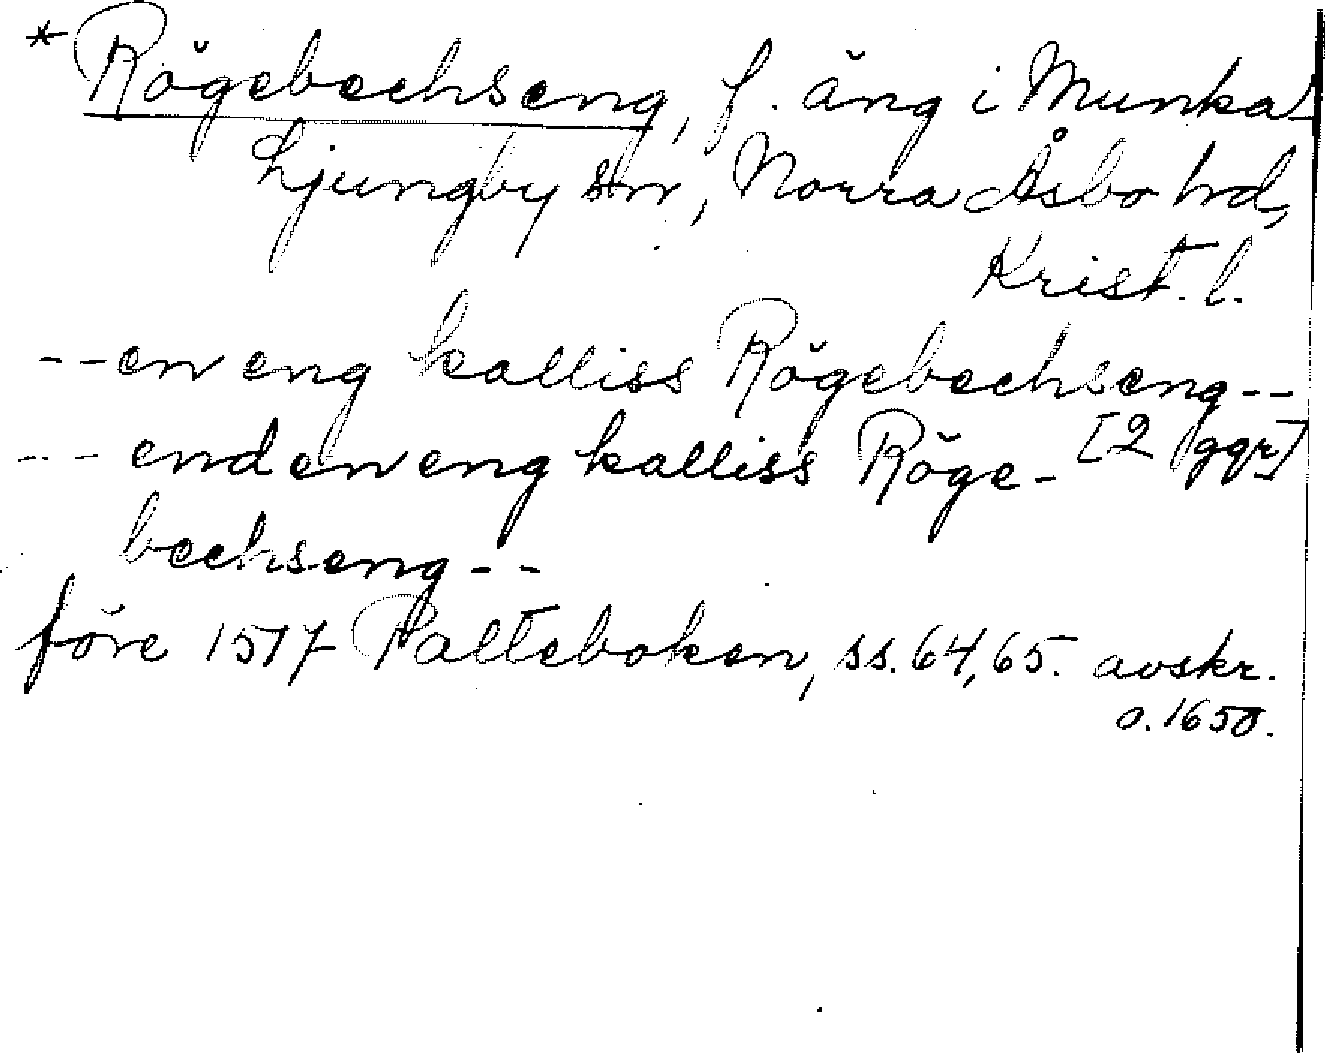 * Rögebechseng, f. äng i Munka-
Ljungby sn, Norra Åsbo hd,
Krist. l.
-- en eng kalliss Rögebechseng --
[2 ggr]
--- end en eng kalliss Röge-
bechseng --
före 1517 Palteboken, ss. 64, 65. avskr.
o. 1650.